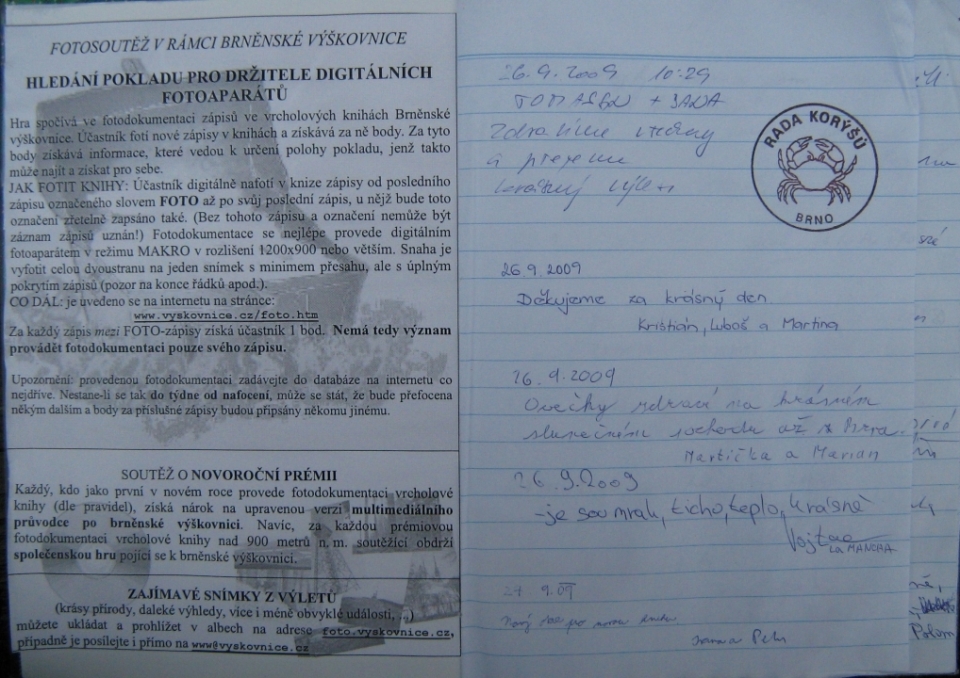 FOTOSOUTĚŽ V RÁMCI BRNĚNSKÉ VÝŠKOVNICE
HLEDÁNÍ POKLADU PRO DRŽITELE DIGITÁLNÍCH
FOTOAPARÁTŮ
Hra spočívá ve fotodokumentaci zápisů ve vrcholových knihách Brněnské
výškovnice. Účastník fotí nové zápisy v knihách a získává za ně body. Za tyto
body získává informace, které vedou k určení polohy pokladu, jenž takto
může najít a získat pro sebe.
JAK FOTIT KNIHY: Účastník digitálně nafotí v knize zápisy od posledního
zápisu označeného slovem FOTO až po svůj poslední zápis, u nějž bude toto
označení zřetelně zapsáno také. (Bez tohoto zápisu a označení nemůže být
záznam zápisů uznán!) Fotodokumentace se nejlépe provede digitálním
fotoaparátem v režimu MAKRO v rozlišení 1200x900 nebo větším. Snaha je
vyfotit celou dvoustranu na jeden snímek s minimem přesahu, ale s úplným
pokrytím zápisů (pozor na konce řádků apod.).
CO DÁL: je uvedeno se na internetu na stránce:
www.vyskovnice.cz/foto.htm
Za každý zápis mezi FOTO-zápisy získá účastník 1 bod. Nemá tedy význam
provádět fotodokumentaci pouze svého zápisu.
Upozornění: provedenou fotodokumentaci zadávejte do databáze na internetu co
nejdříve. Nestane-li se tak do týdne od nafocení, může se stát, že bude přefocena
někým dalším a body za příslušné zápisy budou připsány někomu jinému.
SOUTĚŽ O NOVOROČNÍ PRÉMII
Každý, kdo jako první v novém roce provede fotodokumentaci vrcholové
knihy (dle pravidel), získá nárok na upravenou verzi multimediálního
průvodce po brněnské výškovnici. Navíc, za každou prémiovou
fotodokumentaci vrcholové knihy nad 900 metrů n. m. soutěžící obdrží
společenskou hru pojící se k brněnské výškovnici.
ZAJÍMAVÉ SNÍMKY Z VÝLETŮ
(krásy přírody, daleké výhledy, více i méně obvyklé události, ...)
můžete ukládat a prohlížet v albech na adrese foto.vyskovnice.cz,
případně je posílejte i přímo na www@vyskovnice.cz
26.9.2009 10:29
+ JANA
Zdravíme všechny
a přejeme
krásný výlet
RADA KORÝŠŮ
BRNO
26.9.2009
Děkujeme za krásný den.
Kristián, Luboš a Martina
26.9.2009
Ovečky zdraví na krásném
slunečném až z Brna.
Martička a Marian
26.9.2009
-je soumrak, ticho, teplo, krásně
LA MANCHA
27.9.09